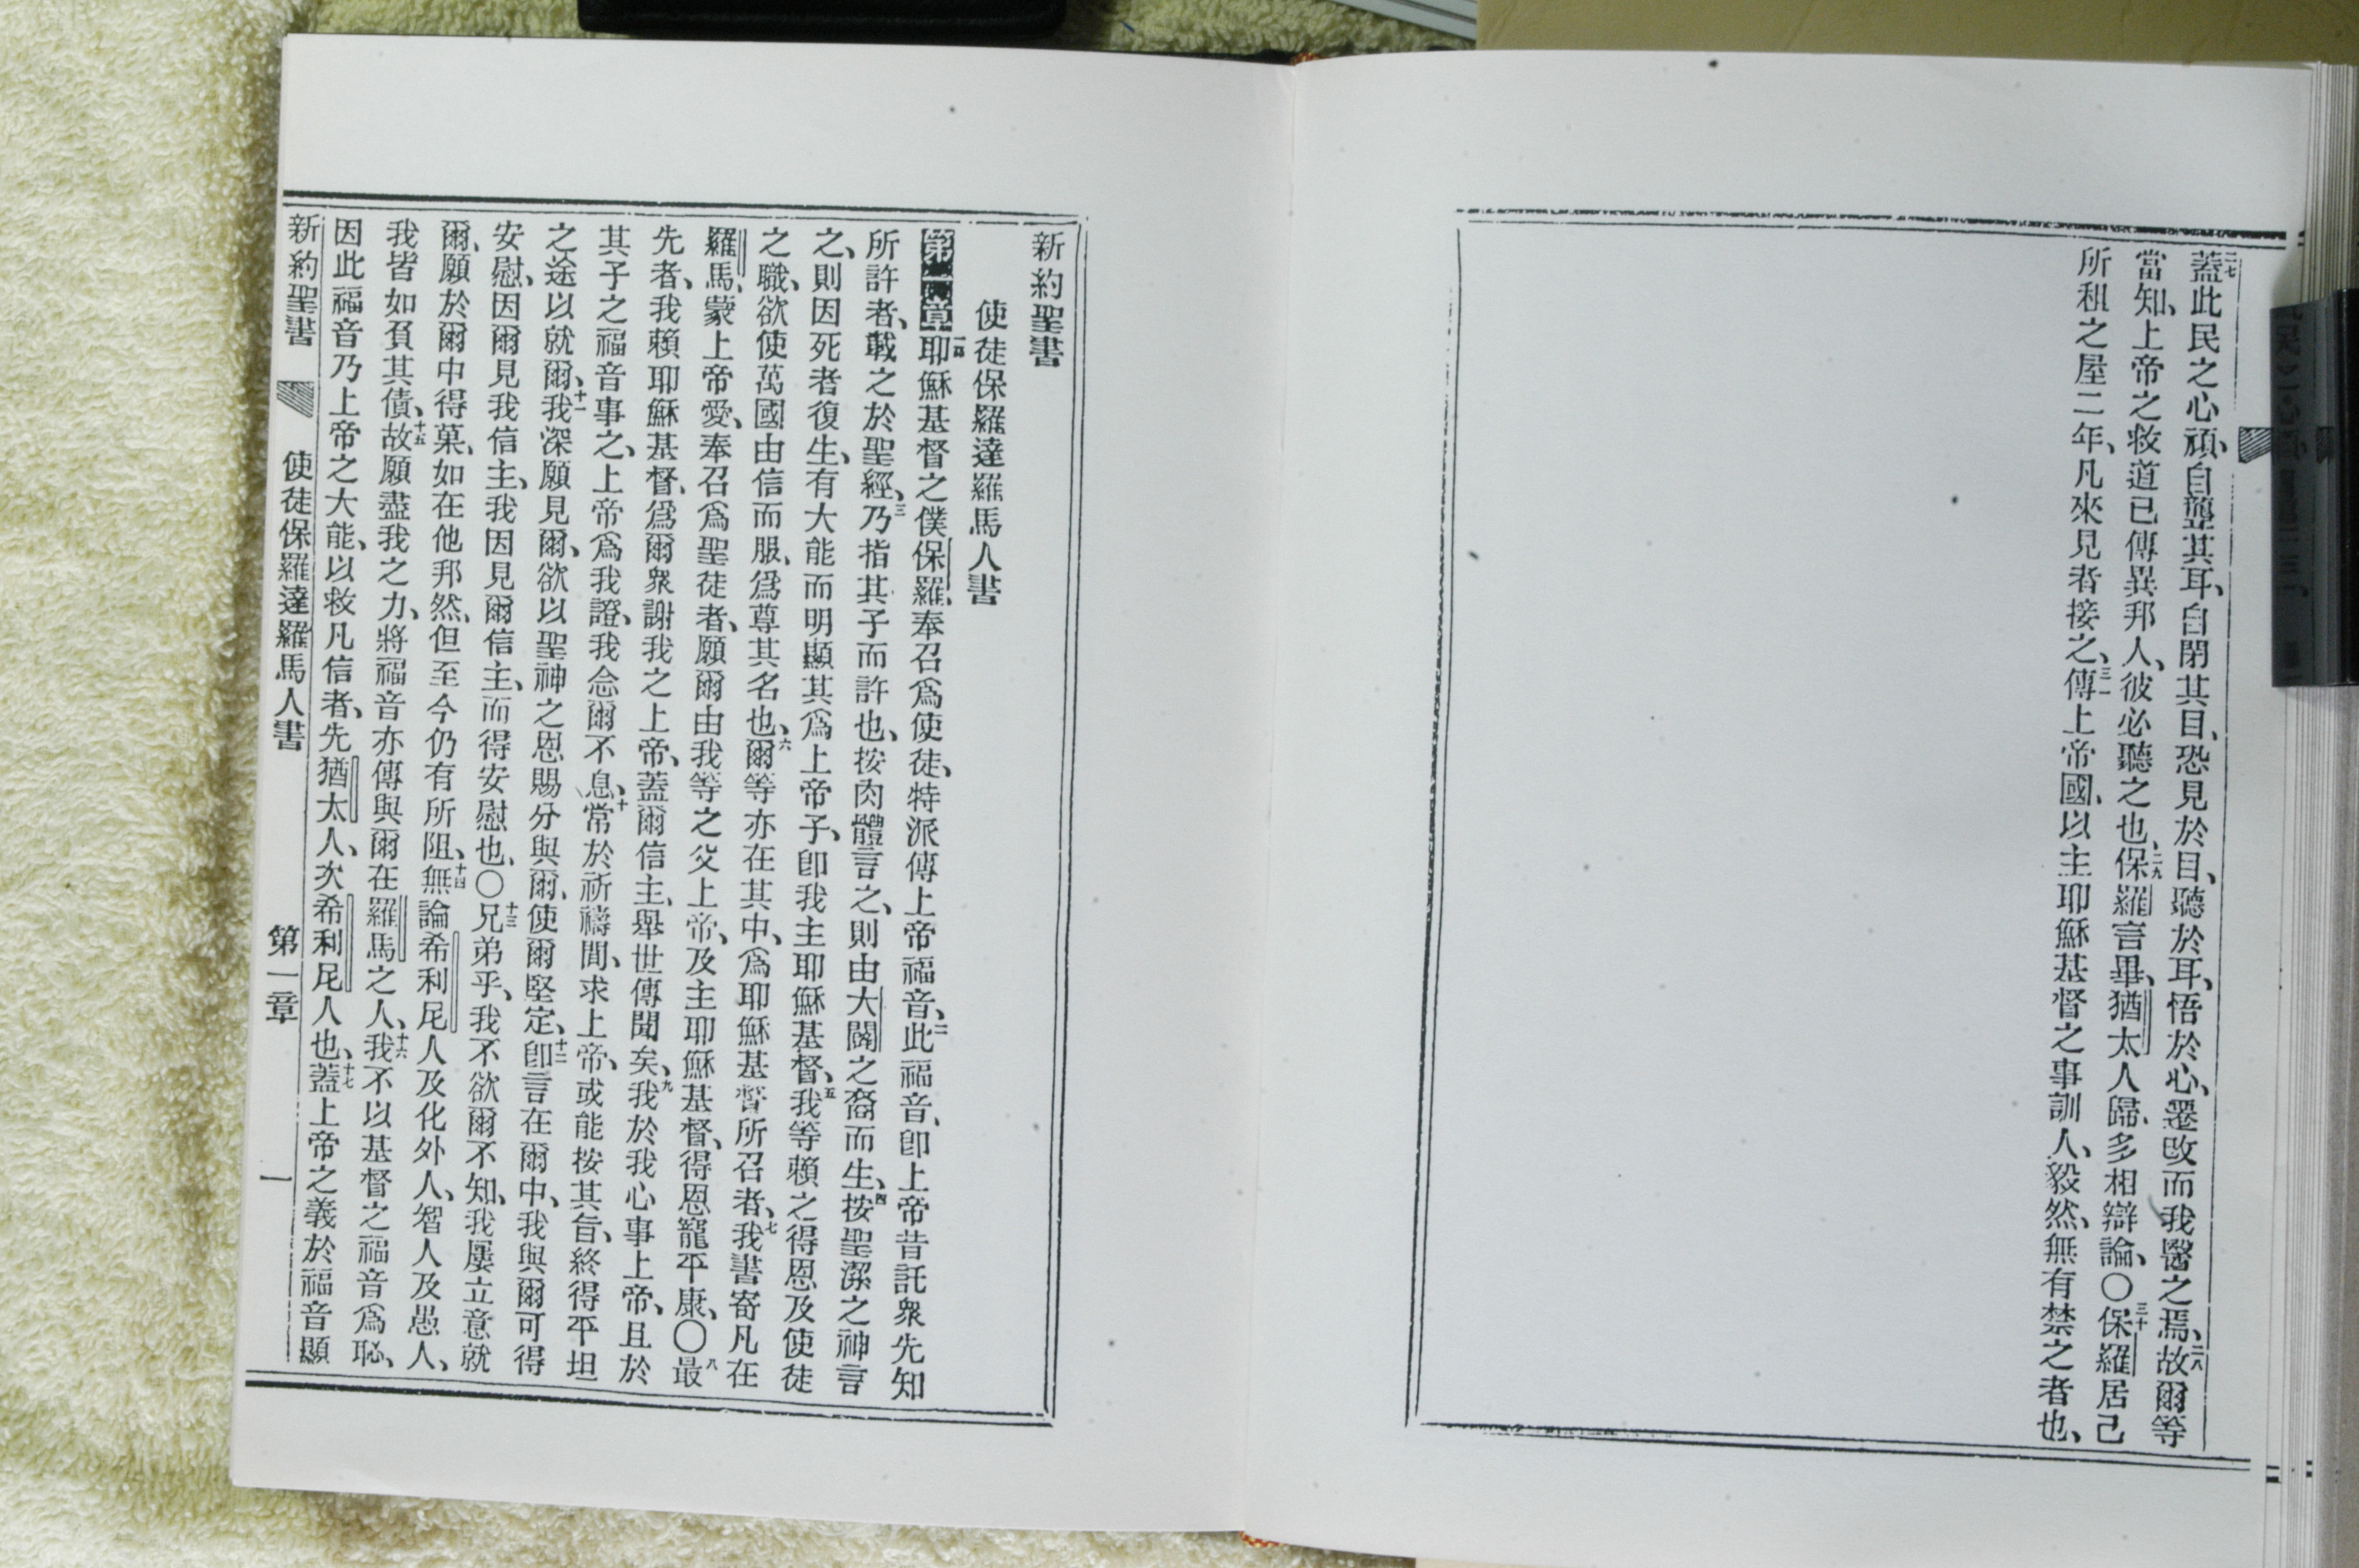 二七蓋此民之心頑、自聾其耳、自閉其目、恐見於目、聽於耳、悟於心、遷改而我醫之焉、二八故爾等
當知、上帝之救道已傳異邦人、彼必聽之也、二九保羅言畢、猶太人歸、多相辯論、〇三十保羅居己
所租之屋二年、凡來見者接之、三一傳上帝國、以主耶穌基督之事訓人、毅然、無有禁之者也、
新約聖書
使徒保羅達羅馬人書
第一章一耶穌基督之僕保羅、奉召爲使徒、特派傳上帝福音、二此福音、卽上帝昔託衆先知
所許者、載之於聖經、三乃指其子而許也、按肉體言之、則由大闢之裔而生、四按聖潔之神言
之、則因死者復生、有大能而明顯其爲上帝子、卽我主耶穌基督、五我等賴之得恩及使徒
之職、欲使萬國由信而服、爲尊其名也、六爾等亦在其中、爲耶穌基督所召者、七我書寄凡在
羅馬、蒙上帝愛、奉召爲聖徒者、願爾由我等之父上帝、及主耶穌基督、得恩寵平康、〇八最
先者、我賴耶穌基督、爲爾衆謝我之上帝、蓋爾信主、舉世傳聞矣、九我於我心事上帝、且於
其子之福音事之、上帝爲我證、我念爾不息、十常於祈禱間、求上帝、或能按其旨、終得平坦
之途以就爾、十一我深願見爾、欲以聖神之恩賜分與爾、使爾堅定、十二卽言在爾中、我與爾可得
安慰、因爾見我信主、我因見爾信主、而得安慰也、〇十三兄弟乎、我不欲爾不知、我屢立意就
爾、願於爾中得菓、如在他邦然、但至今仍有所阻、十四無論希利尼人及化外人、智人及愚人、
我皆如負其債、十五故願盡我之力、將福音亦傳與爾在羅馬之人、十六我不以基督之福音爲恥、
因此福音乃上帝之大能、以救凡信者、先猶太人、次希利尼人也、十七蓋上帝之義於福音顯
新約聖書 使徒保羅達羅馬人書 第一章 一